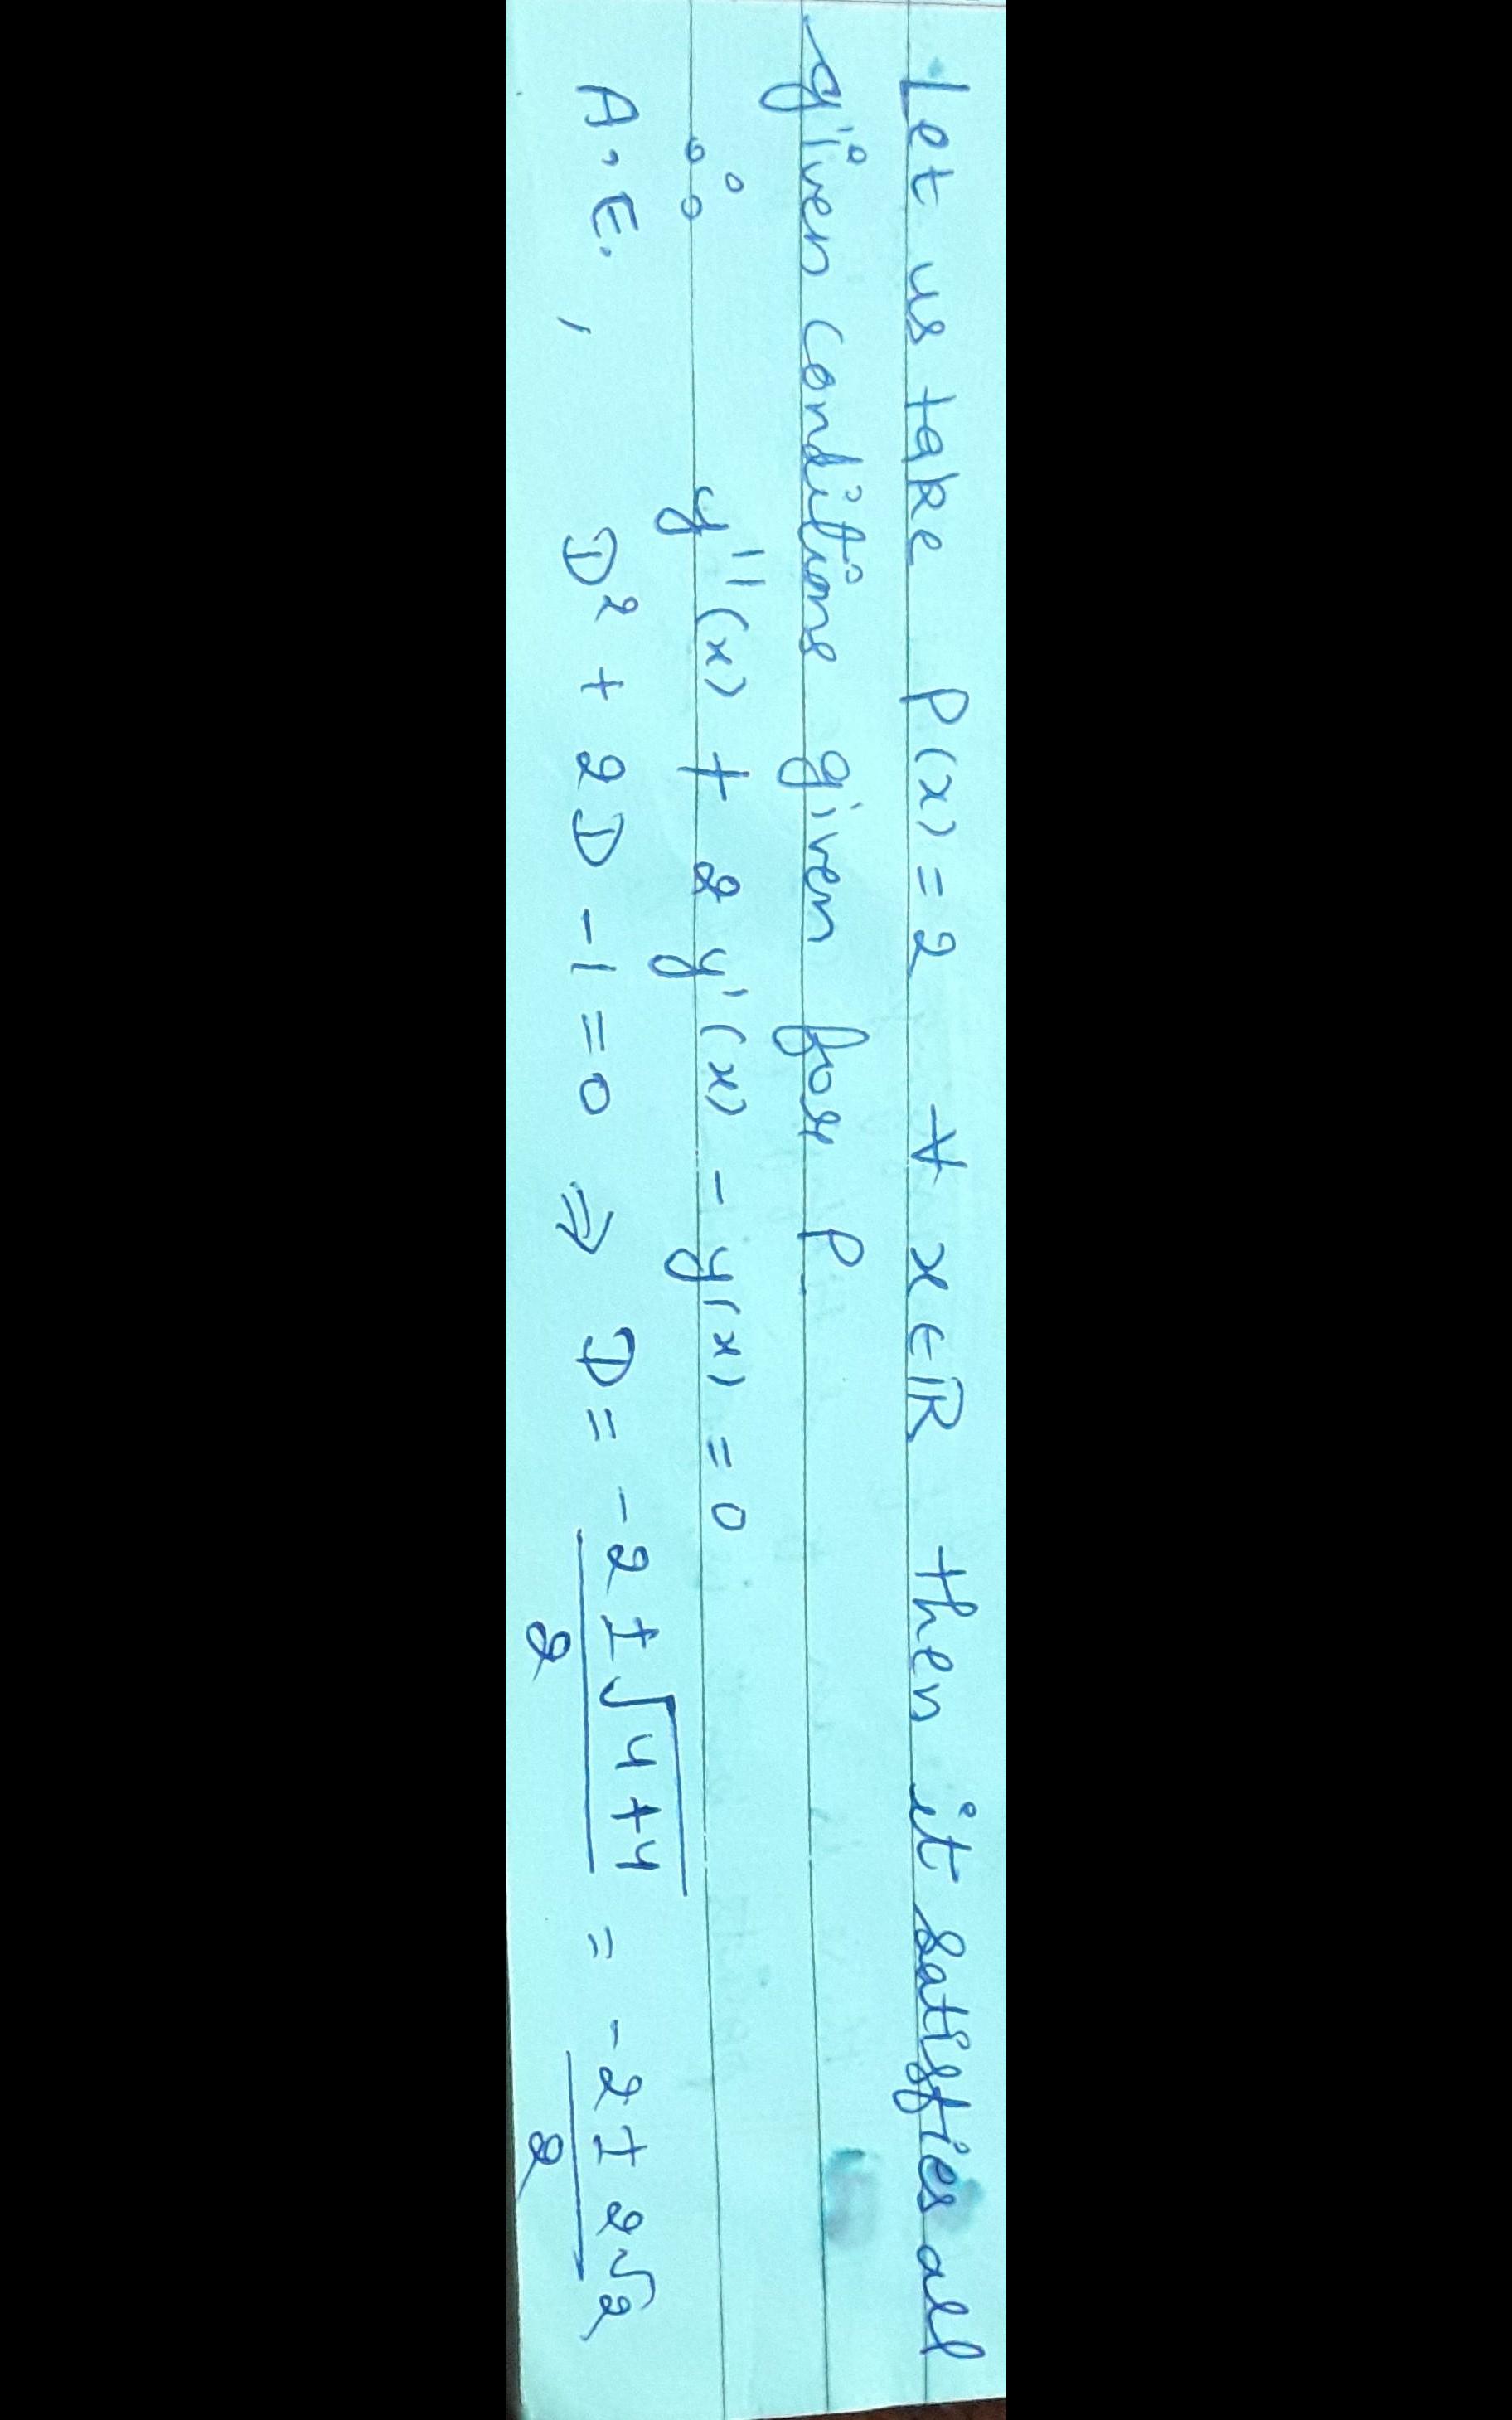 Let us take P(x) = 2 ∀ x ∈ ℝ then it satisfies all
given conditions given for P.
∴ y''(x) + 2y'(x) - y(x) = 0
A.E., D² + 2D - 1 = 0 ⇒ D = (-2 ± √(4+4))/2 = (-2 ± 2√2)/2